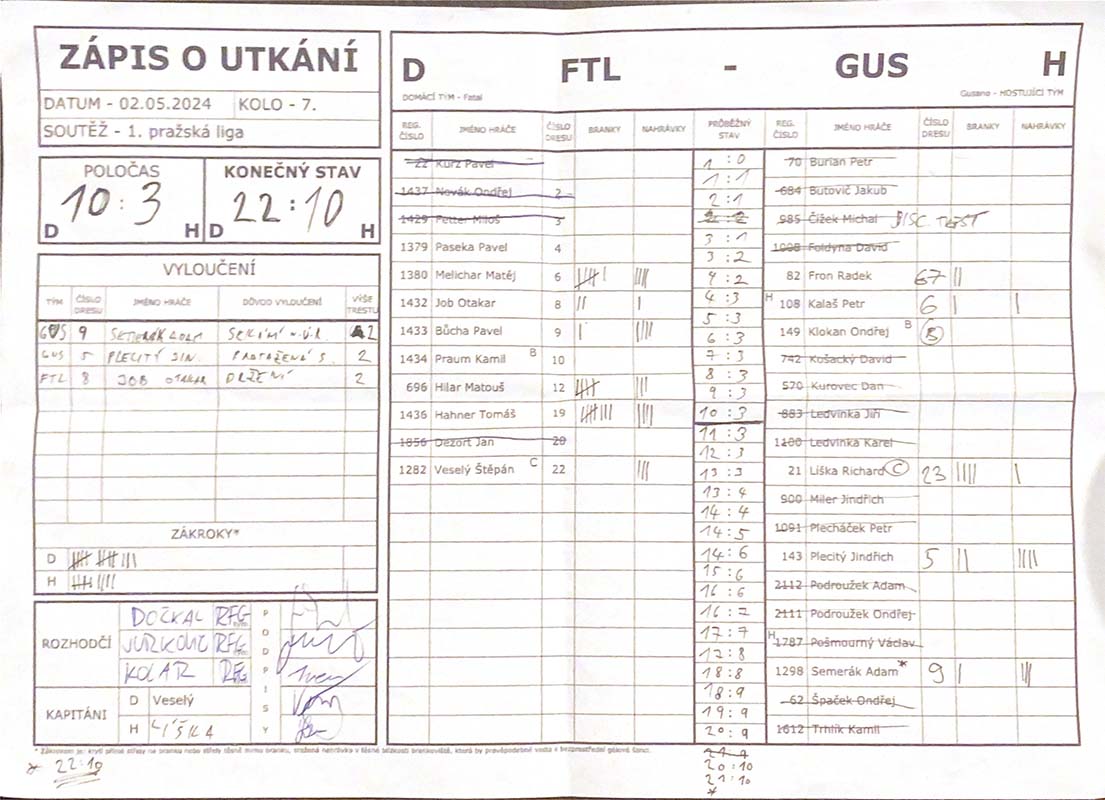 ZÁPIS O UTKÁNÍ
DATUM - 02.05.2024 KOLO - 7.
SOUTĚŽ - 1. pražská liga
POLOČAS KONEČNÝ STAV
10:3 22:10
D H D H
VYLOUČENÍ
TÝM ČÍSLO DRESU JMÉNO HRÁČE DŮVOD VYLOUČENÍ VÝŠE TRESTU
GUS 9 2
GUS 5 PLECITÝ JIN. 2
FTL 8 JOB OTAKAR DRŽENÍ 2
ZÁKROKY*
D
H
ROZHODČÍ
DOČKAL RFG
RFG
KOLAR RFG
PODPISY
KAPITÁNI
D Veselý
H LIŠKA
D FTL - GUS H
DOMÁCÍ TÝM - Fatal Gusano - HOSTUJÍCÍ TÝM
REG. ČÍSLO JMÉNO HRÁČE ČÍSLO DRESU BRANKY NAHRÁVKY PRŮBĚŽNÝ STAV REG. ČÍSLO JMÉNO HRÁČE ČÍSLO DRESU BRANKY NAHRÁVKY
22 Kurz Pavel
1437 Novák Ondřej 2
1429 Petter Miloš 3
1379 Paseka Pavel 4
1380 Melichar Matěj 6
1432 Job Otakar 8
1433 Bůcha Pavel 9
1434 Praum Kamil B 10
696 Hilar Matouš 12
1436 Hahner Tomáš 19
1856 Dezort Jan 20
1282 Veselý Štěpán C 22
1:0
1:1
2:1
2:2
3:1
3:2
4:2
4:3
5:3
6:3
7:3
8:3
9:3
10:3
11:3
12:3
13:3
13:4
14:4
14:5
14:6
15:6
16:6
16:7
17:7
17:8
18:8
18:9
19:9
20:9
21:9
20:10
21:10
*
70 Burian Petr
684 Butovič Jakub
985 Čížek Michal DISC. TREST
1008 Foldyna David
82 Fron Radek 67
H 108 Kalaš Petr 6
149 Klokan Ondřej B 8
742 Košacký David
570 Kurovec Dan
883 Ledvinka Jiří
1100 Ledvinka Karel
21 Liška Richard C 23
900 Miler Jindřich
1091 Plecháček Petr
143 Plecitý Jindřich 5
2112 Podroužek Adam
2111 Podroužek Ondřej
H 1787 Pošmourný Václav
1298 Semerák Adam * 9
62 Špaček Ondřej
1612 Trhlík Kamil
* 22:10